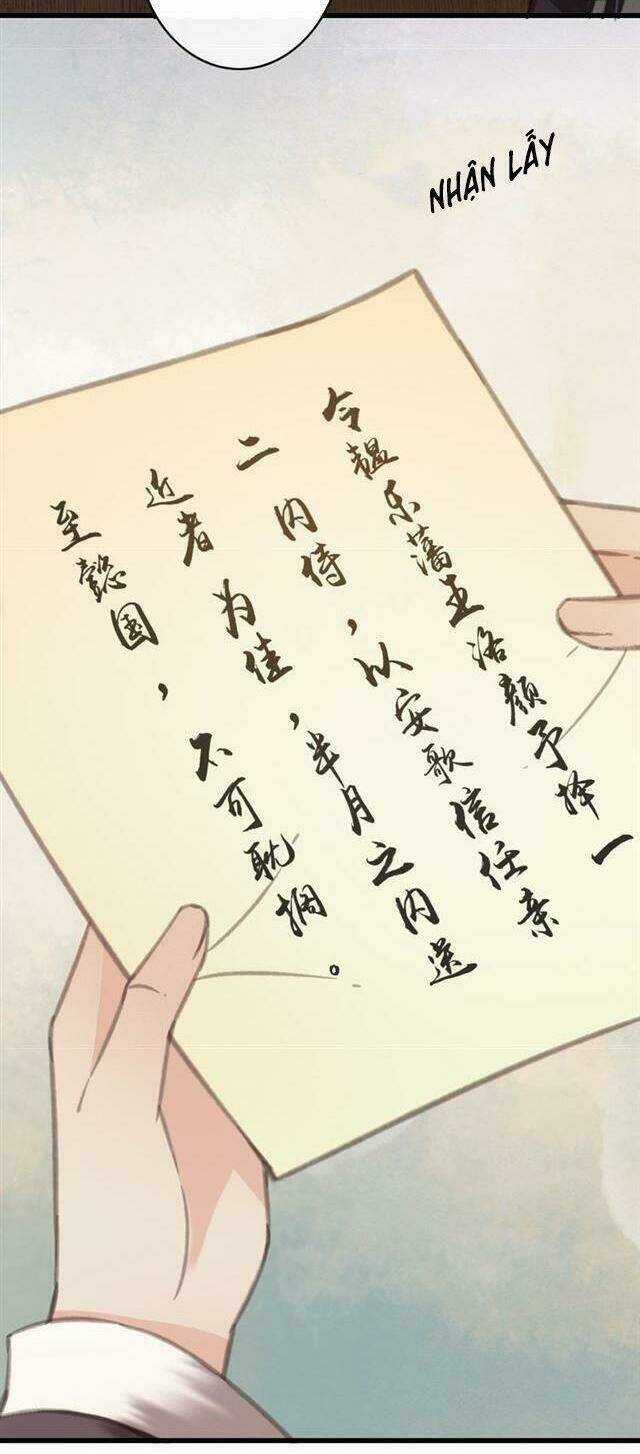 NHẬN LẤY
令韫乐藩王洛颜予择一
二内侍，以安歌信任亲
近者为佳，半月之内送
至懿国，不可耽搁。